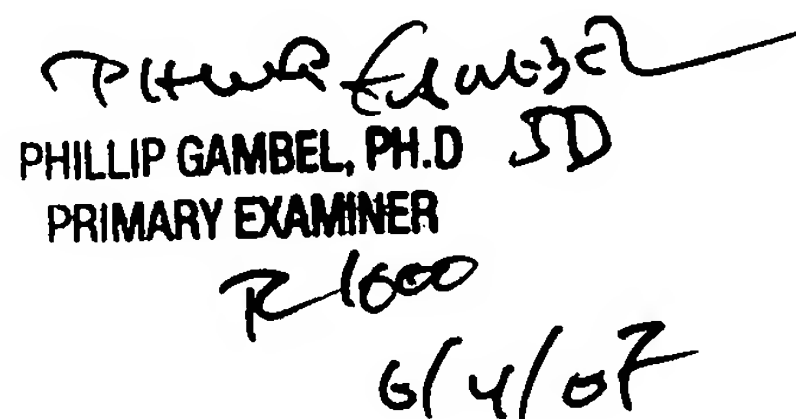 PHILLIP GAMBEL
PHILLIP GAMBEL, PH.D JD
PRIMARY EXAMINER
TC 1600
6/4/07